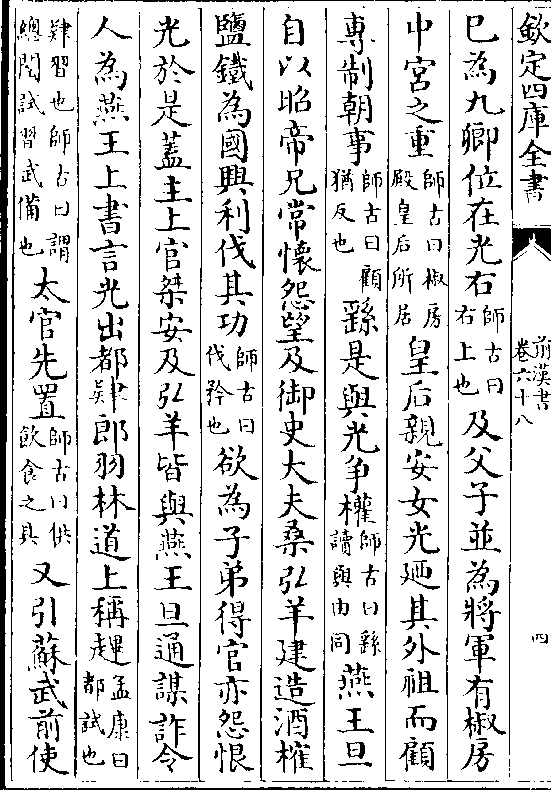 欽定四庫全書
前漢書
卷六十八
四
已為九卿位在光右師古曰右上也及父子並為將軍有椒房
中宮之重師古曰椒房殿皇后所居皇后親安女光廼其外祖而顧
專制朝事師古曰顧猶反也繇是與光爭權師古曰繇讀與由同燕王旦
自以昭帝兄常懷怨望及御史大夫桑弘羊建造酒榷
鹽鐵為國興利伐其功師古曰伐矜也欲為子弟得官亦怨恨
光於是蓋主上官桀安及弘羊皆與燕王旦通謀詐令
人為燕王上書言光出都肄郎羽林道上稱䟆孟康曰都試也
肄習也師古曰謂總閱試習武備也太官先置師古曰供飲食之具又引蘇武前使